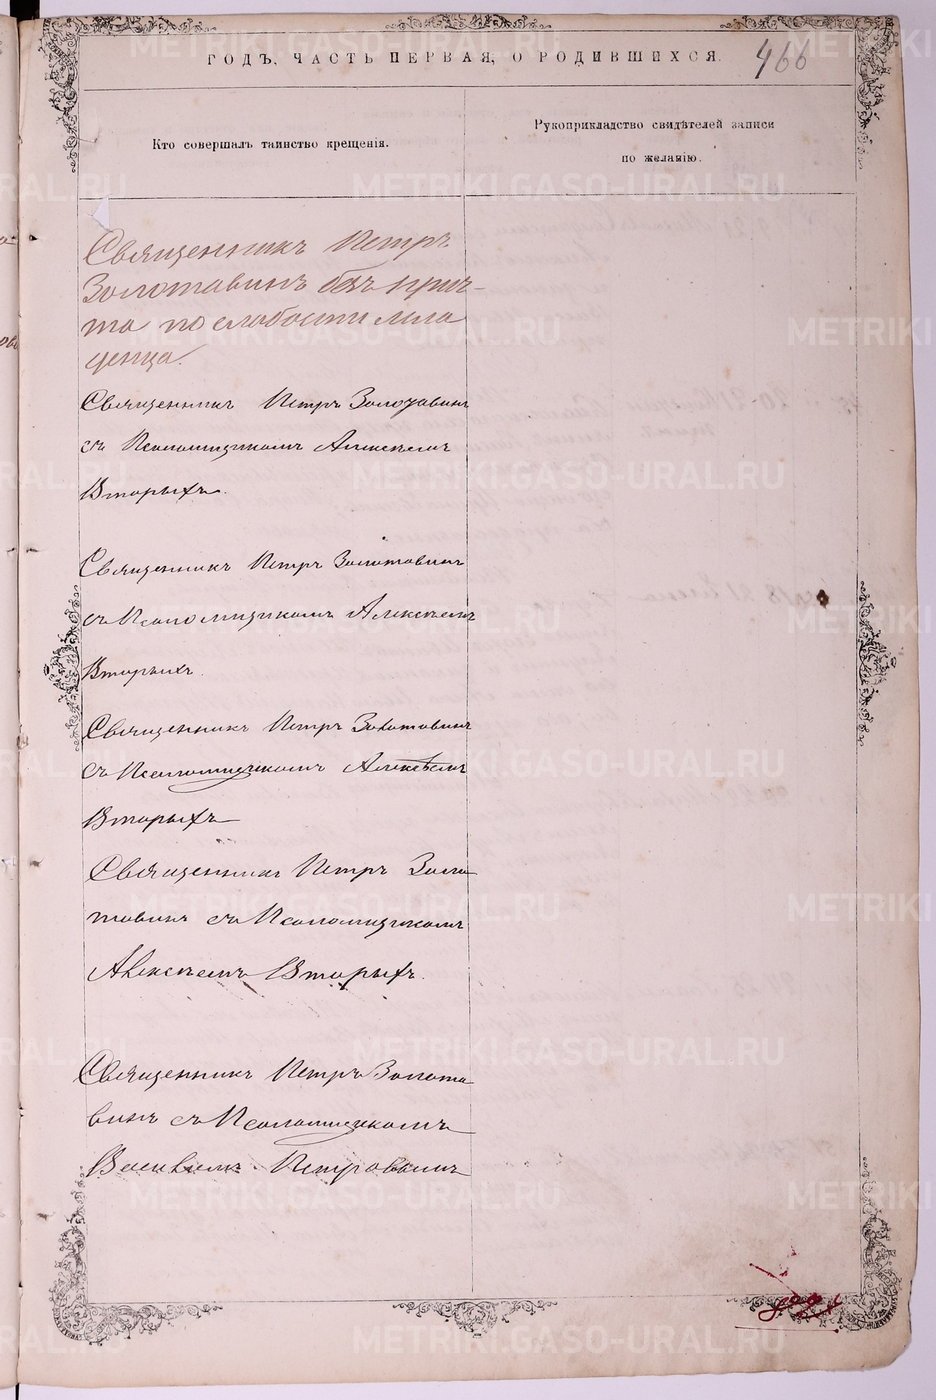 ГОДЪ, ЧАСТЬ ПЕРВАЯ, О РОДИВШИХСЯ. 466
Кто совершалъ таинство крещенія.
Рукоприкладство свидѣтелей записи
по желанію.
Священникъ Петръ
Золотавинъ безъ прич-
та по слабости мла
денца.
Священникъ Петръ Золотавинъ
съ Псаломщикомъ Алексѣемъ
Вторыхъ.
Священникъ Петръ Золотавинъ
съ Псаломщикомъ Алексѣемъ
Вторыхъ.
Священникъ Петръ Золотавинъ
съ Псаломщикомъ Алексѣемъ
Вторыхъ
Священникъ Петръ Золо
тавинъ съ Псаломщикомъ
Алексѣемъ Вторыхъ.
Священникъ Петръ Золота
винъ съ Псаломщикомъ
Петровымъ
METRIKI.GASO-URAL.RU